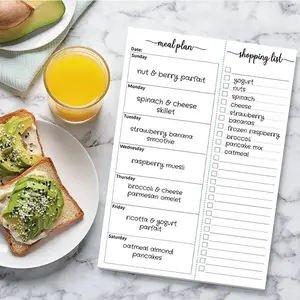 meal plan
Date:
Sunday
nut & berry parfait
Monday
spinach & cheese
skillet
Tuesday
strawberry banana
smoothie
Wednesday
raspberry muesli
Thursday
broccoli & cheese
parmesan omelet
Friday
ricotta & yogurt
parfait
Saturday
oatmeal almond
pancakes
shopping list
yogurt
nuts
spinach
cheese
strawberry
bananas
frozen raspberry
broccoli
pancake mix
oatmeal